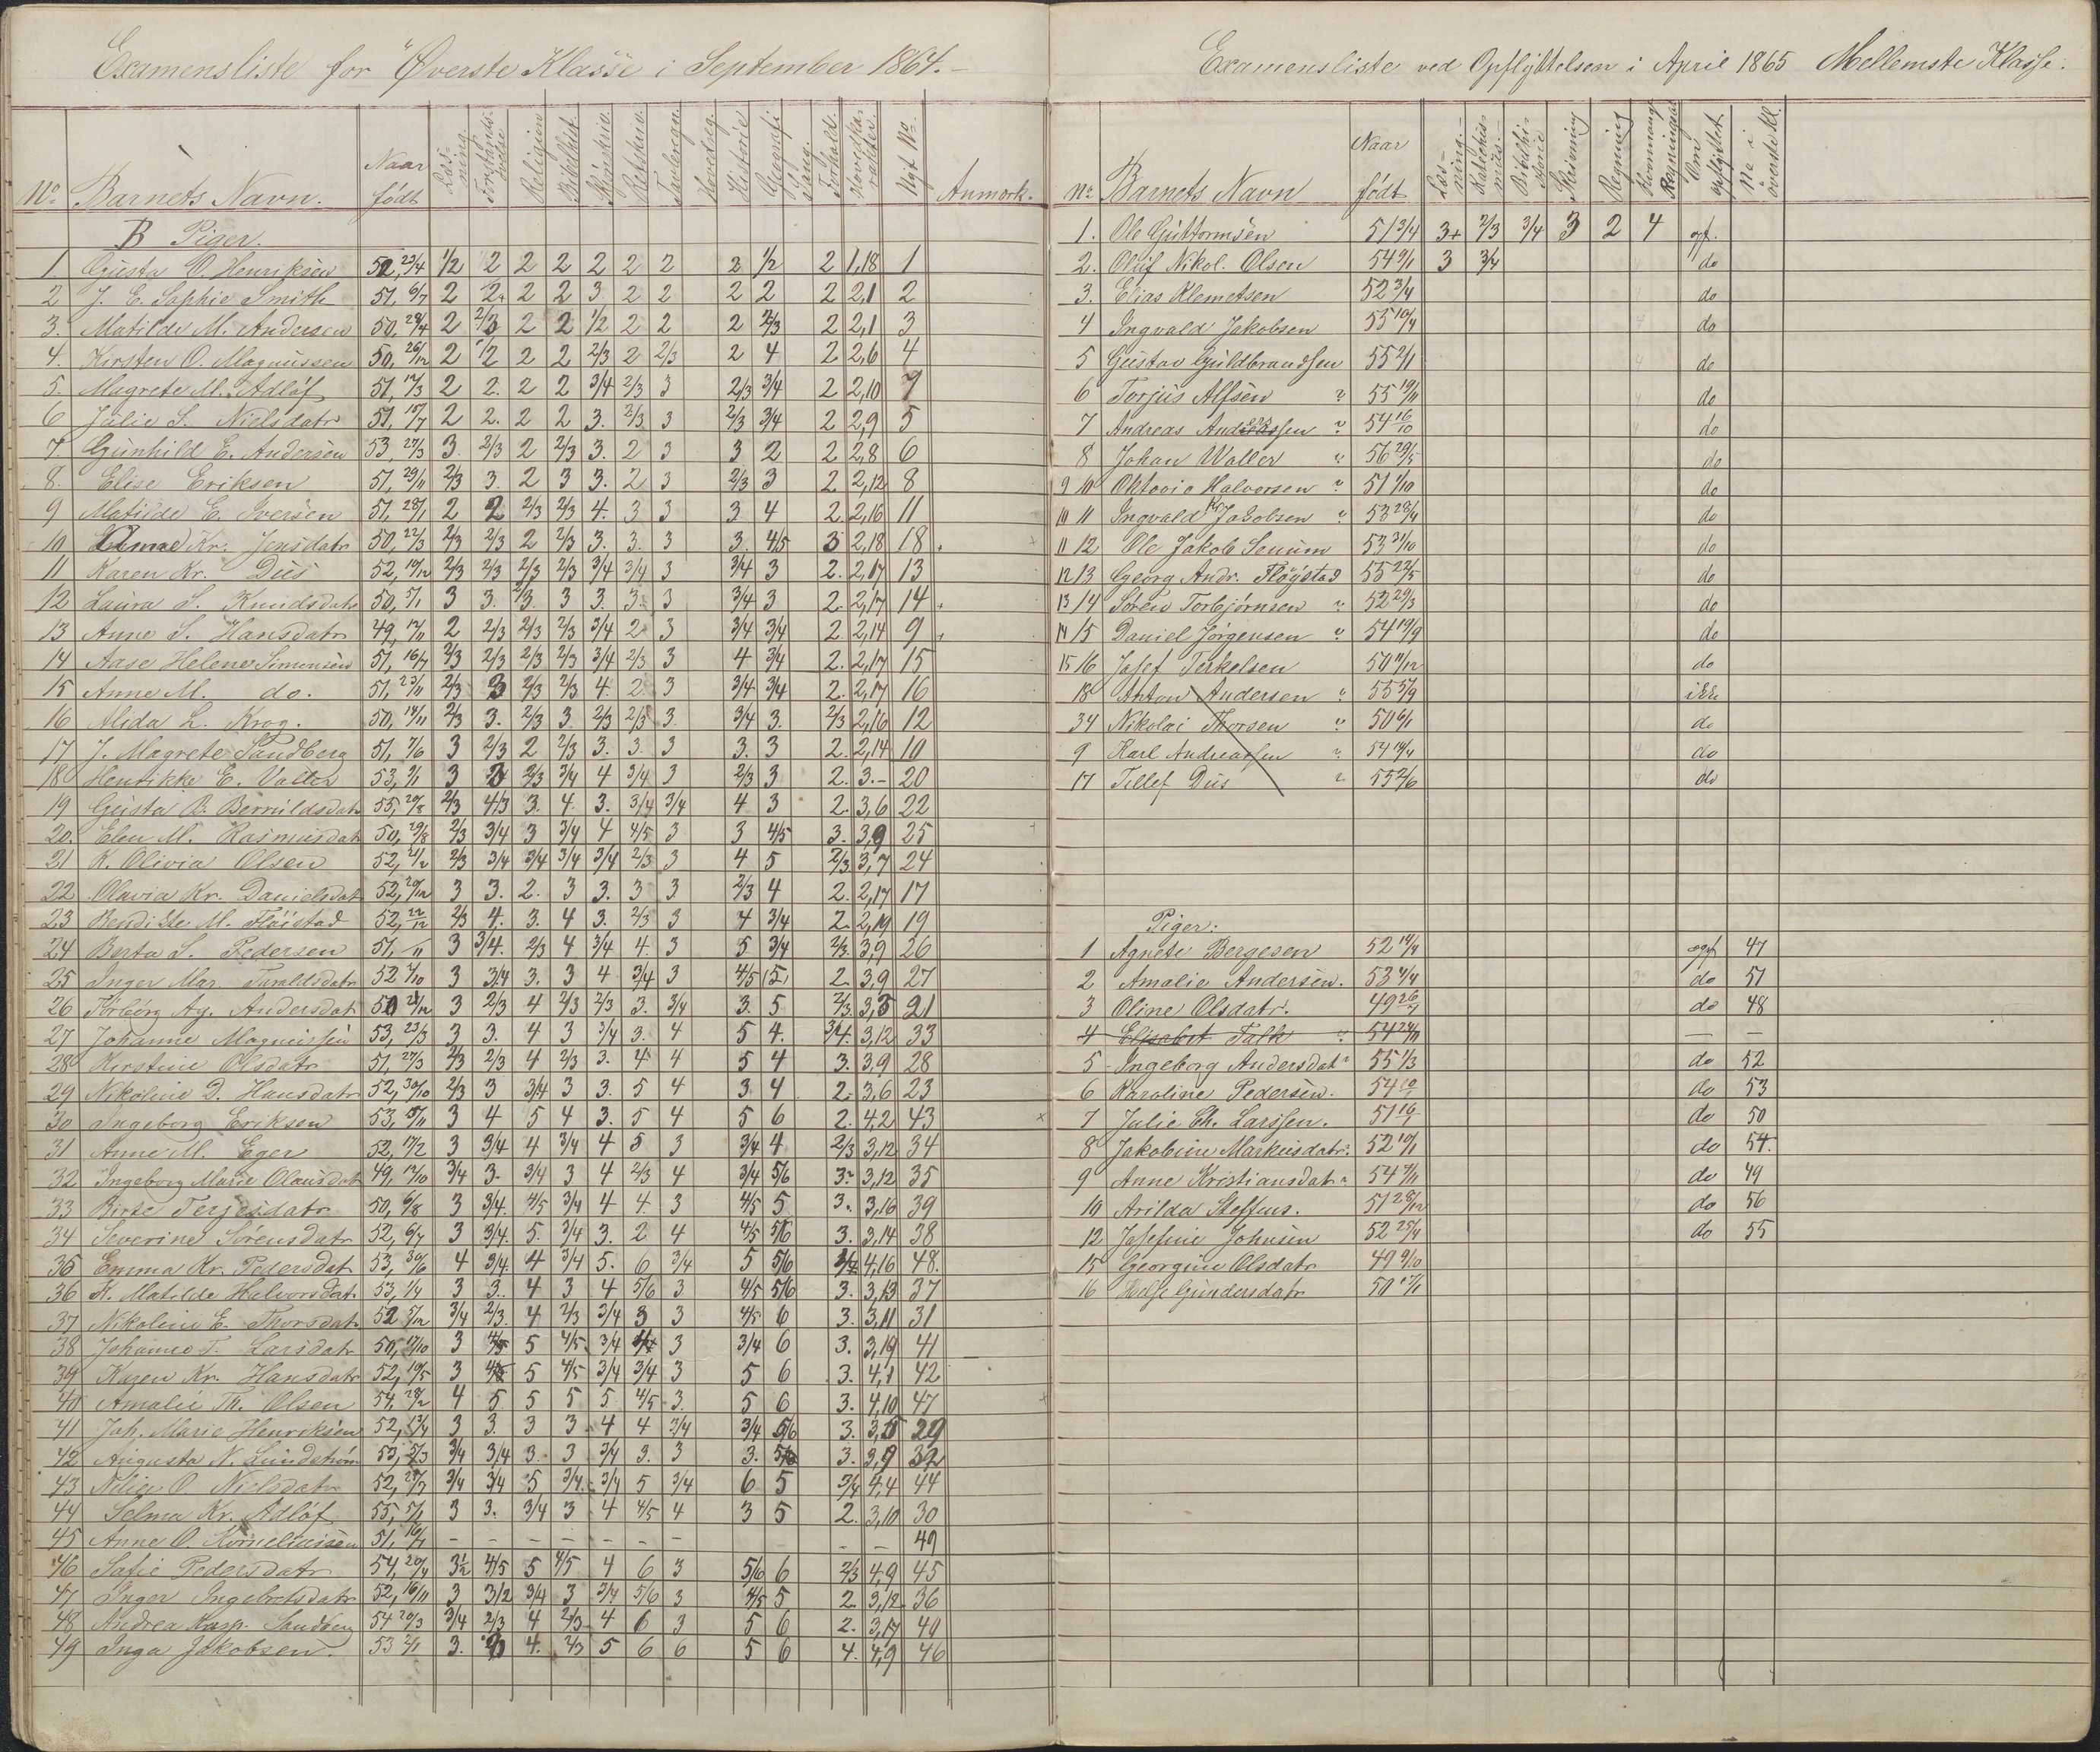 Examensliste for Øverste Klasse i September 1864.
No. Barnets Navn. Naar født Læsning Forstandsøvelse Religion Bibelhist. Skjönskriv. Retskriv. Tavleregn. Hovedreg. Historie Geografi Sang. Forhold. Hovedkarakter. Nyt No. Anmærk.
B Piger.
1 Gusta O. Henriksen 52, 23/4 1/2 2 2 2 2 2 2 2 1/2 2 1,18 1
2 J. E. Sophie Smith 51, 6/7 2 2 2 2 3 2 2 2 2 2 2,1 2
3. Matilde M. Andersen 50, 28/4 2 2/3 2 2 1/2 2 2 2 2/3 2 2,1 3
4. Kirsten O. Magnussen 50, 26/12 2 1/2 2 2 2/3 2 2/3 2 4 2 2,6 4
5. Magrete M. Adlöf 51, 17/3 2 2. 2 2 3/4 2/3 3 2/3 3/4 2 2,10 7
6 Julie S. Nielsdatr 51, 15/7 2 2. 2 2 3. 2/3 3 2/3 3/4 2 2,9 5
7. Gunhild E. Andersen 53, 27/3 3. 2/3 2 2/3 3. 2 3 3 2 2 2,8 6
8. Elise Eriksen 51, 29/11 2/3 3. 2 3 3. 2 3 2/3 3 2 2,12 8
9 Matilde E. Iversen 51, 28/1 2 2 2/3 2/3 4. 3 3 3 4 2. 2,16 11
10 Kr. Jensdatr 50, 22/3 2/3 2/3 2 2/3 3. 3. 3 3. 4/5 3 2,18 18
11 Karen Kr. Dus 52, 19/12 2/3 2/3 2/3 2/3 3/4 3/4 3 3/4 3 2. 2,17 13
12 Laura S. Knudsdatr 50, 5/1 3 3. 2/3 3 3. 3. 3 3/4 3 2. 2,17 14
13 Anne S. Hansdatr 49, 17/11 2 2/3 2/3 2/3 3/4 2 3 3/4 3/4 2. 2,14 9
14 Aase Helene Simonsen 51, 16/7 2/3 2/3 2/3 2/3 3/4 2/3 3 4 3/4 2. 2,17 15
15 Anne M. do. 51, 23/11 2/3 3 2/3 2/3 4. 2 3 3/4 3/4 2. 2,17 16
16 Alida L. Krog. 50, 14/11 2/3 3. 2/3 3. 2/3 2/3 3. 3/4 3. 2/3 2,16 12
17 J. Magrete Sandberg 51, 7/6 3 2/3 2 2/3 3. 3. 3 3. 3 2. 2,14 10
18 Henrikke E. Valler 53, 3 2/3 3/4 4 3/4 3 2/3 3 2. 3.- 20
19 Gusta B. Bernildsdatr 55, 20/8 2/3 4/3 3. 4. 3. 3/4 3/4 4 3 2. 3,6 22
20. Elen M. Rasmusdatr 50, 29/8 2/3 3/4 3 3/4 4 4/5 3 3 4/5 3. 3,9 25
21 K. Olivia Olsen 52, 21/2 2/3 3/4 3/4 3/4 3/4 2/3 3 4 5 2/3 3,7 24
22 Olavia Kr. Danielsdatr 52, 20/12 3 3. 2. 3 3. 3 3 2/3 4 2. 2,17 17
23 Bendikte M. Flöistad 52, 22/12 2/3 4. 3. 4 3. 2/3 3 4 3/4 2. 2,19 19
24 Berta S. Pedersen 51, 3 3/4. 2/3 4 3/4 4. 3 5 3/4 2/3. 3,9 26
25 Inger Mar. Taraldsdatr 52 7/10 3 3/4 3. 3 4 3/4 3 4/5 5 2. 3,9 27
26 Torborg Ag. Andersdat 50 21/12 3 2/3 4 2/3 2/3 3. 3/4 3. 5 2/3. 3,5 21
27 Johanne Magnussen 53, 23/3 3 3. 4 3 3/4 3. 4 5 4. 3/4. 3,12 33
28 Kirstine Olsdatr 51, 27/3 2/3 2/3 4 2/3 3. 4 4 5 4 3. 3,9 28
29 Nikoline D. Hansdatr 52, 30/10 2/3 3 3/4 3 3. 5 4 3 4 2. 3,6 23
30 Ingeborg Eriksen 53, 3 4 5 4 3. 5 4 5 6 2. 4,2 43
31 Anne M. Eger 52, 17/2 3 3/4 4 3/4 4 5 3 3/4 4 2/3 3,12 34
32 Ingeborg Marie Olausdat 49, 17/10 3/4 3. 3/4 3 4 2/3 4 3/4 5/6 3. 3,12 35
33 Birte Terjesdatr 50, 6/8 3 3/4. 4/5 3/4 4 4. 3 4/5 5 3. 3,16 39
34 Severine Sörensdatr 52, 6/7 3 3/4. 5. 3/4 3. 2 4 4/5 5/6 3. 3,14 38
35 Emma Kr. Pedersdat 53, 30/6 4 3/4. 4 3/4 5. 6 3/4 5 5/6 3/4 4,16 48.
36 K. Matilde Halvorsdat 53, 1/4 3 3. 4 3 4 5/6 3 4/5 5/6 3. 3,13 37
37 Nikoline E. Thorsdatr 52 5/12 3/4 2/3. 4 2/3 3/4 3 3 4/5 6 3. 3,11 31
38 Johanne T. Larsdatr 50, 17/10 3 4/5 5 4/5 3/4 3 3/4 6 3. 3,19 41
39 Karen Kr. Hansdatr 52, 19/5 3 5 4/5 3/4 3/4 3 5 6 3. 4,1 42
40 Amalie Th. Olsen 54, 28/2 4 5 5 5 5 4/5 3. 5 6 3. 4,10 47
41 Joh. Marie Henriksen 52, 3 3. 3 3 4 4 3/4 3/4 5/6 3. 29
42 Augusta N. Lundström 53, 5/3 3/4 3/4 3. 3 3/4 3. 3 3. 3. 32
43 O. Nielsdatr 52, 3/4 3/4 5 3/4 3/4 5 3/4 6 5 3/4 4,4 44
44 Selma Kr. Adlöf 55, 5/1 3 3. 3/4 3 4 4/5 4 3 5 2. 3,10 30
45 Anne O. Korneliussen 51, - - - - - - - - - 49
46 Sofie Pedersdatr 54, 20/4 3½ 4/5 5 4/5 4 6 3 5/6 6 2/3 4,9 45
47 Inger Ingebretsdatr 52, 16/11 3 3/2 3/4 3 3/4 5/6 3 4/5 5 2. 3,12 36
48 Andrea Kasp. Sandberg 54 20/3 3/4 2/3 4 2/3 4 6 3 5 6 2. 3,17 40
49 Inga Jakobsen. 53 3. 4. 2/3 5 6 6 5 6 4. 4,9 46
Examensliste ved Opflyttelsen i April 1865 Mellemste Klasse.
No. Barnets Navn Naar født Læsning. Katekismus. Bibelhistorie Skrivning Regning Om opflyttet No i överste Kl.
1. Ole Guttormsen 51 3/4 3+ 2/3 3/4 3 2 4 opf.
2. Oluf Nikol. Olsen 54 3 3/4 do
3. Elias Klemetsen 52 3/4 do
4 Ingvald Jakobsen 55 10/4 do
5 Gustav Guldbrandsen 55 2/11 do
6 Torjus Alfsen " 55 19/11 do
7 Andreas Andreassen " 54 16/10 do
8 Johan Waller " 56 29/5 do
9 10 Oktavie Halvorsen " 51 1/10 do
10 11 Ingvald Jakobsen " 53 28/4 do
11 12 Ole Jakob Senum 53 31/10 do
12 13 Georg Andr. Flöystad 55 22/5 do
13 14 Sören Torbjörnsen " 52 29/3 do
14 15 Daniel Jörgensen " 54 19/9 do
15 16 Josef Terkelsen 50 11/12 do
18 Anton Andersen " 55 5/9 ikke
34 Nikolai Thorsen " 50 6/1 do
9 Karl Andreassen " 54 do
17 Tellef Dus " 55 2/6 do
Piger:
1 Agnete Bergesen 52 14/4 opf 47
2 Amalie Andersen. 53 do 51
3 Oline Olsdatr. 49 do 48
4 Elisabet Falk " 54 — —
5 Ingeborg Andersdat " 55 1/3 do 52
6 Karoline Pedersen. 54 do 53
7 Julie Ch. Larssen. 51 do 50
8 Jakobine Markusdatr. 52 do 54.
9 Anne Kristiansdatr 54 do 49
10 Arilda Steffens. 51 28/12 do 56
12 Josefine Johnsen 52 25/4 do 55
15 Georgine Olsdatr 49 9/10
16 Helje Gundersdatr 50 17/1